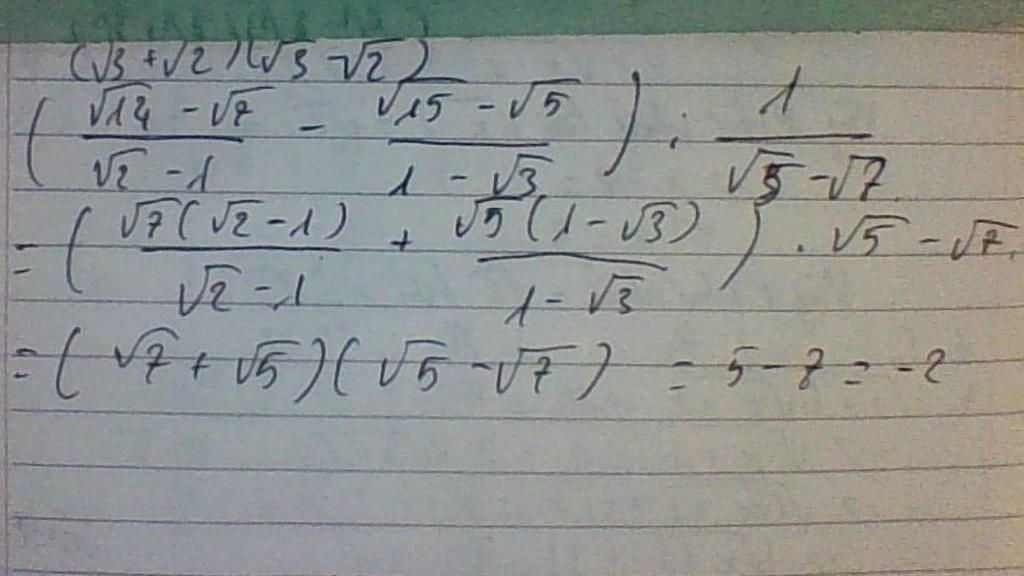 (√3 + √2)(√3 - √2)
( (√14 - √7)/(√2 - 1) - (√15 - √5)/(1 - √3) ) : 1/(√5 - √7)
= ( √7(√2 - 1)/(√2 - 1) + √5(1 - √3)/(1 - √3) ) . √5 - √7.
= (√7 + √5)(√5 - √7) = 5 - 7 = -2